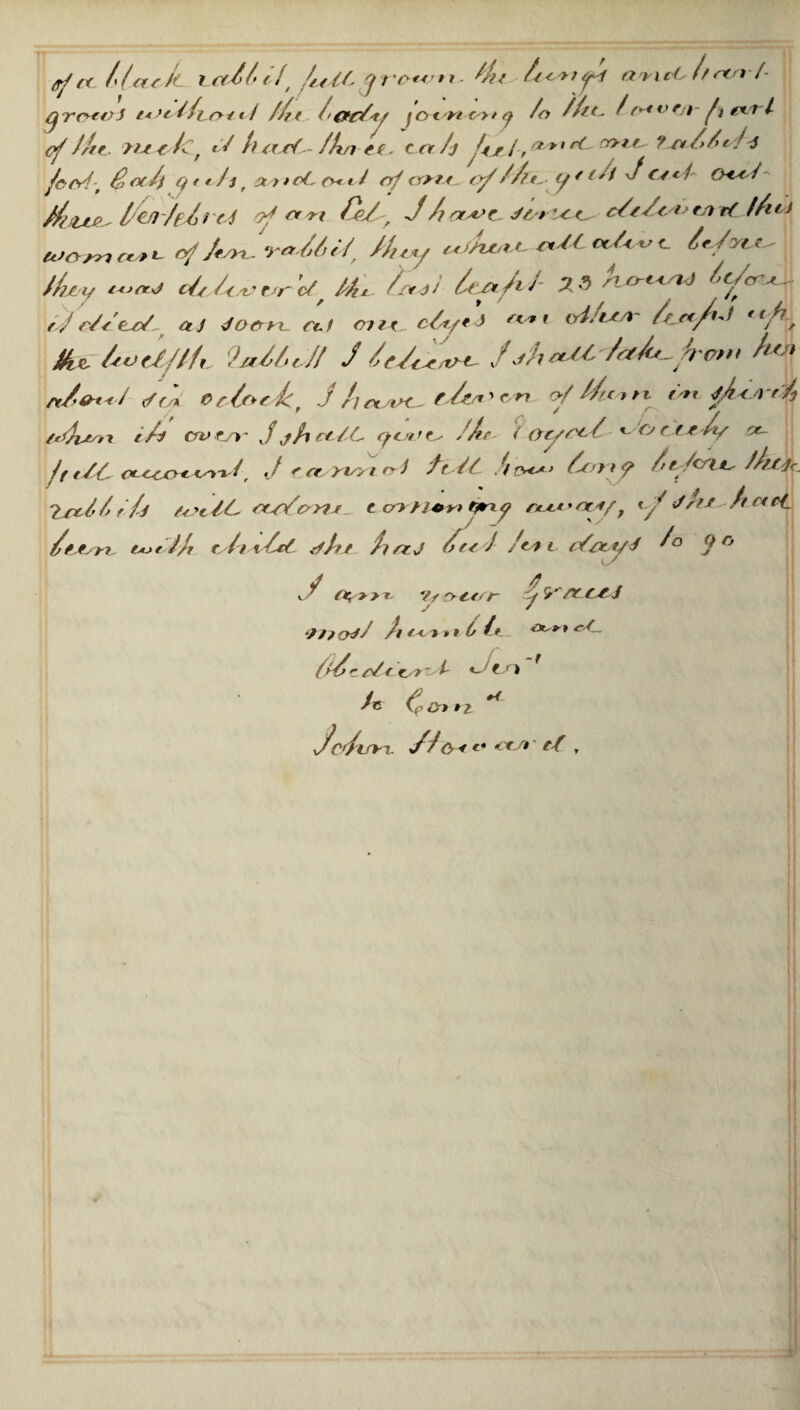 of a black rabbit, full grown. The lungs and heart
grows without the body joining to the lower part
of the neck, it had three cats feet, and one rabbits
foot, Cats guts, and out of one of the guts I cut out
three Vertebres of an Eel, I have since delivered this
woman of ten rabbit, they where all alive before
they was deliver'd the last leapt 23 hours before
it died, as soon as one dyes an other leaps up,
the twelfth Rabbitt I believe I shall take from her
about six oclock, I have eleven of them in spirits
when its over I shall give the Royal Society a
full account, I cannot tell how long before these
Rabbits will adorne conneing away, if she had
been with child she has but ten days to go
I am your graces
most humble and
Obedient Serv't
to Com'd
John Howard,